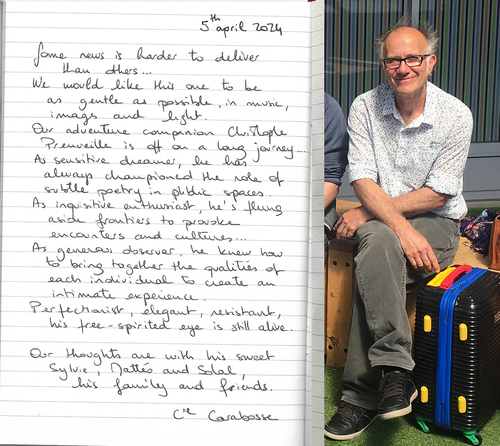 5th april 2024
Some news is harder to deliver
than others...
We would like this one to be
as gentle as possible, in music,
images and light.
Our adventure companion Christophe
Prenveille is off on a long journey...
As sensitive dreamer, he has
always championed the role of
subtle poetry in public spaces.
As inquisitive enthusiast, he's flung
aside frontiers to provoke
encounters and cultures...
As generous observer, he knew how
to bring together the qualities of
each individual to create an
intimate experience.
Perfectionist, elegant, resistant,
his free-spirited eye is still alive.
Our thoughts are with his sweet
Sylvie, Mattéo and Solal,
his family and friends.
Cie Carabosse